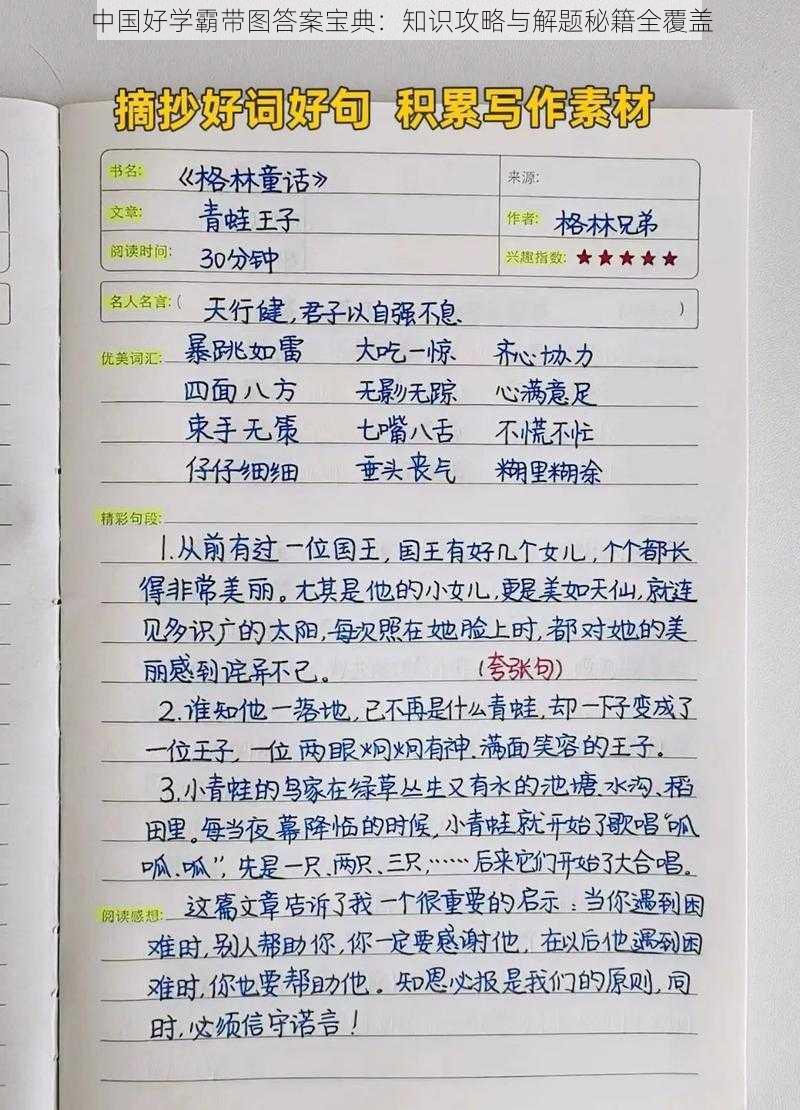 中国好学霸带图答案宝典：知识攻略与解题秘籍全覆盖
摘抄好词好句 积累写作素材
书名: 《格林童话》 来源:
文章: 青蛙王子 作者: 格林兄弟
阅读时间: 30分钟 兴趣指数: ★★★★★
名人名言:( 天行健,君子以自强不息. )
优美词汇: 暴跳如雷 大吃一惊 齐心协力
四面八方 无影无踪 心满意足
束手无策 七嘴八舌 不慌不忙
仔仔细细 垂头丧气 糊里糊涂
精彩句段:
1.从前有过一位国王,国王有好几个女儿,个个都长
得非常美丽。尤其是他的小女儿,更是美如天仙,就连
见多识广的太阳,每次照在她脸上时,都对她的美
丽感到诧异不已。 (夸张句)
2.谁知他一落地,已不再是什么青蛙,却一下子变成了
一位王子,一位两眼炯炯有神.满面笑容的王子。
3.小青蛙的家在绿草丛生又有水的池塘.水沟、稻
田里。每当夜幕降临的时候,小青蛙就开始了歌唱“呱
呱、呱”,先是一只、两只、三只,……后来它们开始了大合唱。
阅读感想: 这篇文章告诉了我一个很重要的启示:当你遇到困
难时,别人帮助你,你一定要感谢他,在以后他遇到困
难时,你也要帮助他。知恩必报是我们的原则,同
时,必须信守诺言!